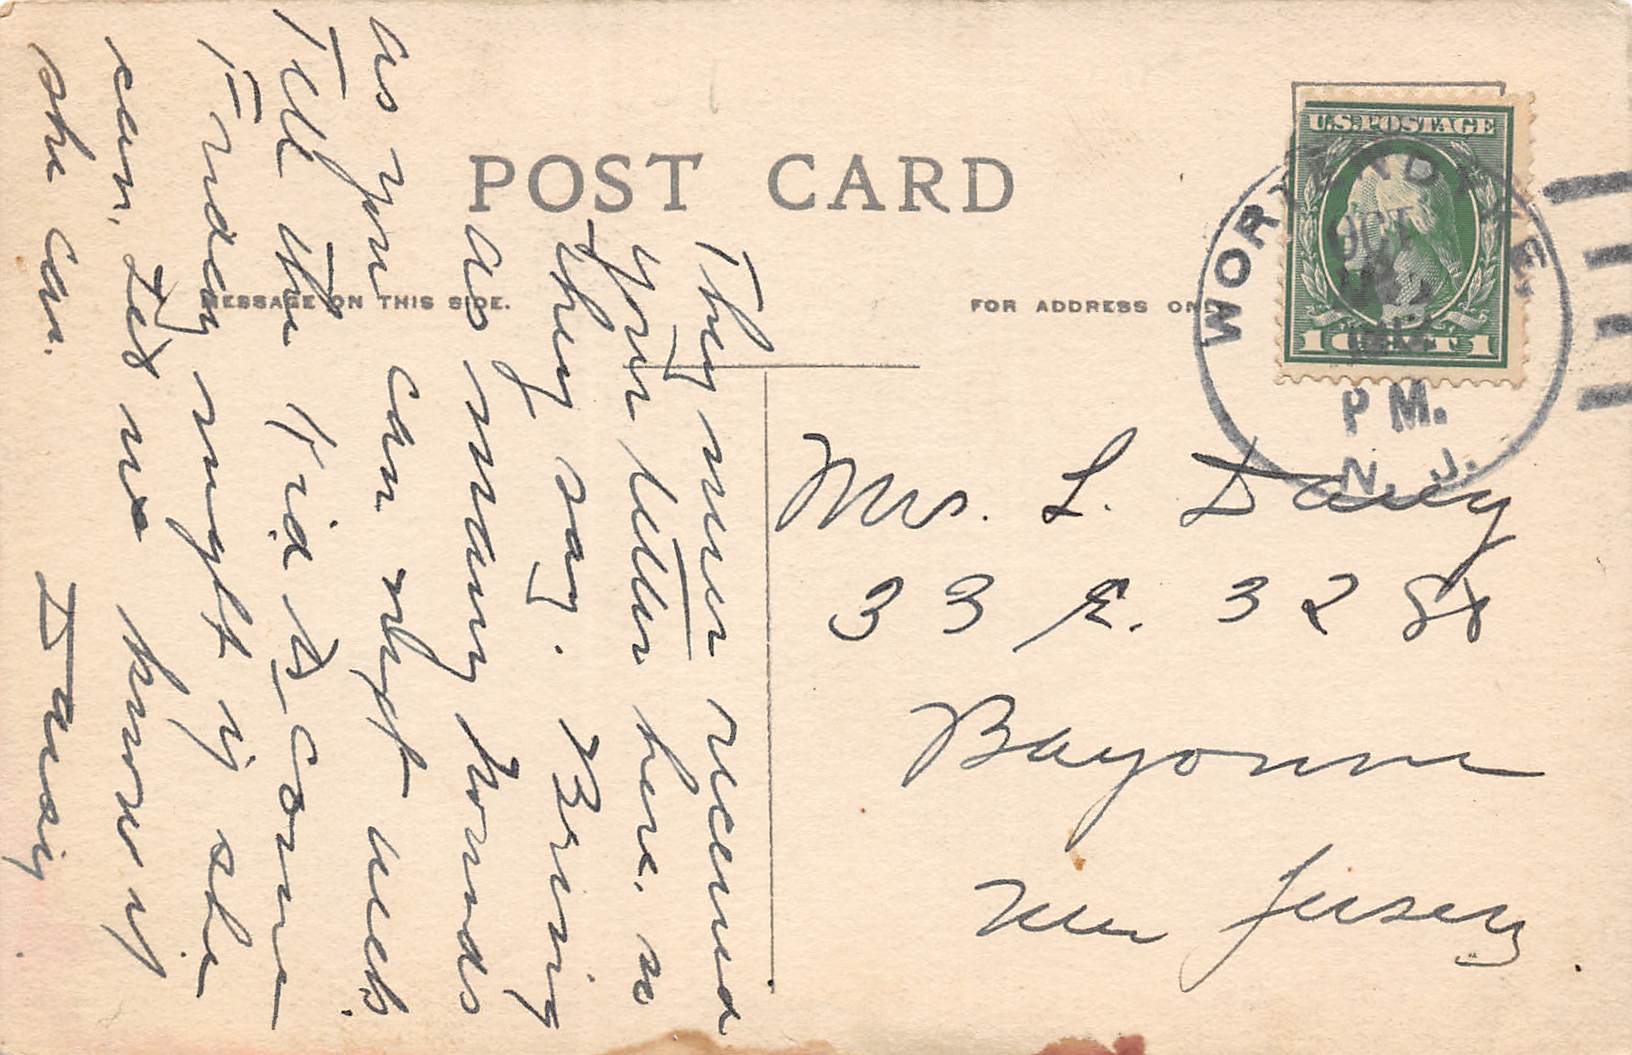 POST CARD
MESSAGE ON THIS SIDE.
FOR ADDRESS ONLY
U.S. POSTAGE
1 CENT 1
WORTENDYKE,
OCT
P M.
N. J.
Mrs. L. Davey
33 E. 32 St
Bayonne
New Jersey
They never received
your letter here. so
they say. Bring
as many hounds
as you can next week
Tell the Kid to come
Friday night if she
can. Let me know if
she can.